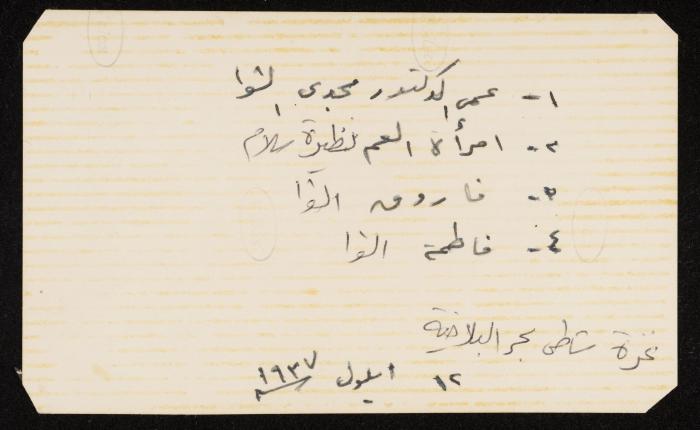 ١- عمي الدكتور مجدي الشوا
٢- امرأة العم نظيرة سلام
٣- فاروق الشوا
٤- فاطمة الشوا
غزة شاطئ بحر البلاخية
١٢ ايلول سنة ١٩٣٧